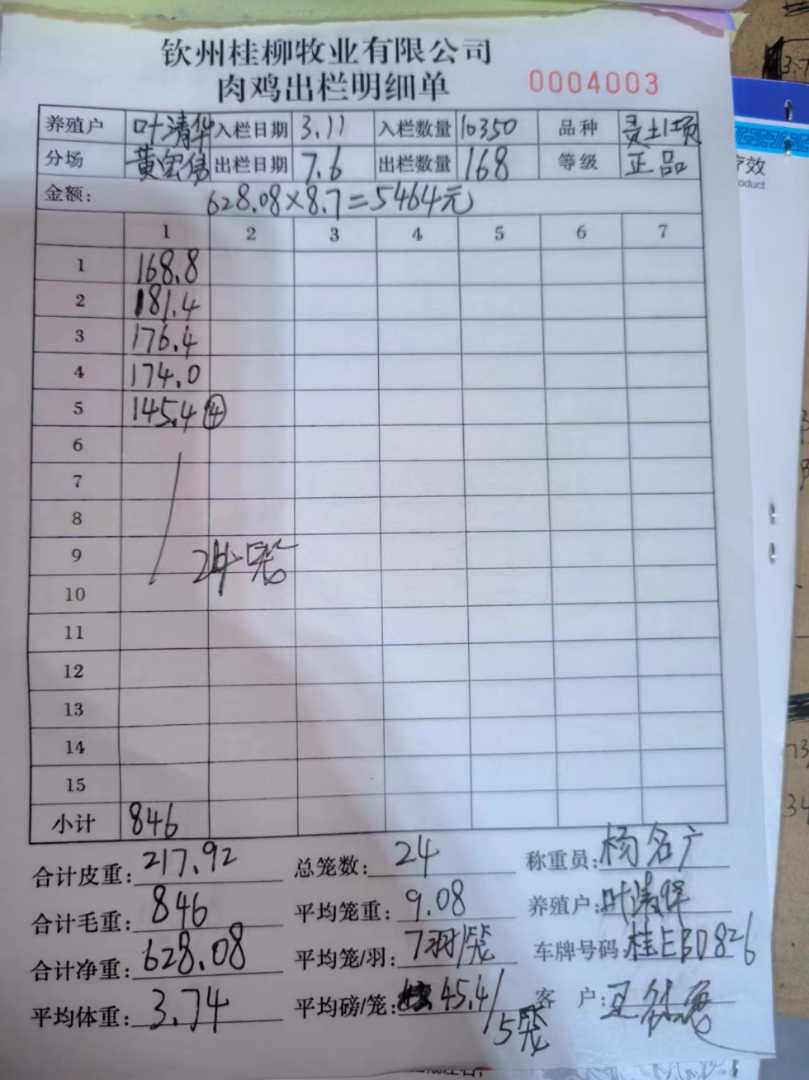 钦州桂柳牧业有限公司
肉鸡出栏明细单 0004003
养殖户 叶清华 入栏日期 3.11 入栏数量 10350 品种 贵土1项
分场 黄宝伟 出栏日期 7.6 出栏数量 168 等级 正品
金额: 628.08×8.7=5464元
1 2 3 4 5 6 7
1 168.8
2 181.4
3 176.4
4 174.0
5 145.4 ④
6
7
8
9 24笼
10
11
12
13
14
15
小计 846
合计皮重: 217.92 总笼数: 24 称重员: 杨名广
合计毛重: 846 平均笼重: 9.08 养殖户: 叶清华
合计净重: 628.08 平均笼/羽: 7羽/笼 车牌号码: 桂EBD826
平均体重: 3.74 平均磅/笼: 45.4/5笼 客 户:
疗效
oduct